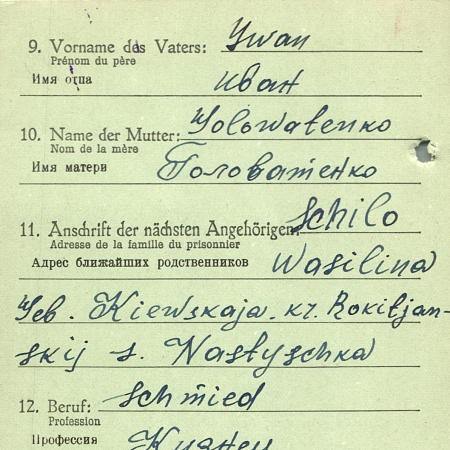 9. Vorname des Vaters: Ywan
Prénom du père
Имя отца Иван
10. Name der Mutter: Golowatenko
Nom de la mère
Имя матери Головатенко
11. Anschrift der nächsten Angehörigen: Schilo
Adresse de la famille du prisonnier
Адрес ближайших родственников Wasilina
Geb. Kiewskaja. kr. Rokitjan-
skij s. Nastyschka
12. Beruf: Schmied
Profession
Профессия Кузнец